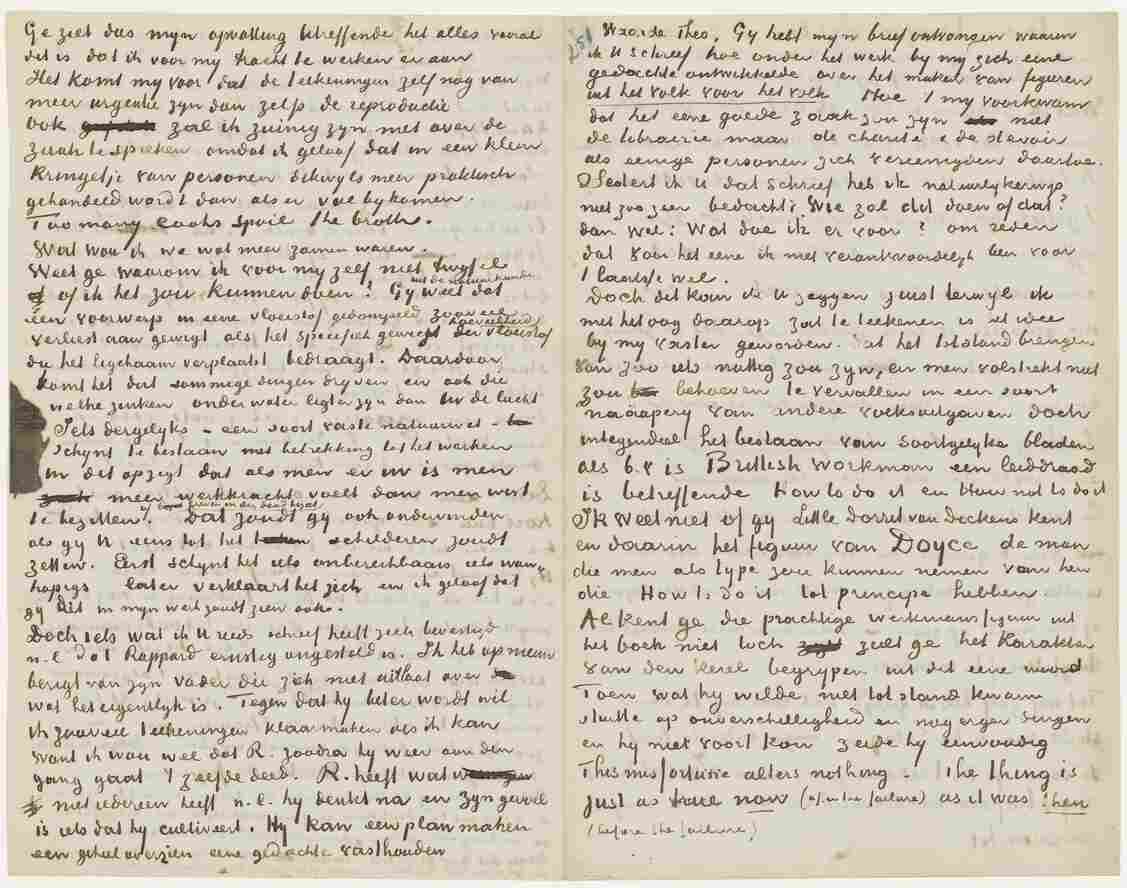 Ge ziet dus myn opvatting betreffende het alles vooral
dit is dat ik voor my tracht te werken er aan
Het komt my voor dat de teekeningen zelf nog van
meer urgentie zyn dan zelfs de reproductie
ook zal ik zuinig zyn met over de
zaak te spreken omdat ik geloof dat in een klein
kringetje van personen dikwyls meer praktisch
gehandeld wordt dan als er vele bykomen.
Too many cooks spoil the broth.
Wat wou ik we wat meer zamen waren.
Weet ge waarom ik voor my zelf niet twyfel
of ik het zou kunnen doen? Gy weet uit de natuurkunde dat
één voorwerp in eene vloeistof gedompeld zooveel
verliest aan gewigt als het specifiek gewigt der hoeveelheid vloeistof
die het ligchaam verplaatst bedraagt. Daardoor
komt het dat sommige dingen dryven en ook die
welke zinken onder water ligter zyn dan in de lucht
Iets dergelyks – een soort vaste natuurwet –
schynt te bestaan met betrekking tot het werken
in dit opzigt dat als men er in is men
meer werkkracht voelt dan men wist
te bezitten. of liever inderdaad bezat Dat zoudt gy ook ondervinden
als gy U eens tot het schilderen zoudt
zetten. Eerst schynt het iets onbereikbaars iets wan-
hopigs later verklaart het zich en ik geloof dat
gy dit in myn werk zoudt zien ook.
Doch iets wat ik U reeds schreef heeft zich bevestigd
n.l. dat Rappard ernstig ongesteld is. Ik heb op nieuw
berigt van zyn vader die zich niet uitlaat over
wat het eigentlyk is. Tegen dat hy beter wordt wil
ik zooveel teekeningen klaar maken als ik kan
want ik wou wel dat R. zoodra hy weer aan den
gang gaat 't zelfde deed. R. heeft wat
niet iedereen heeft n.l. hy denkt na en zyn gevoel
is iets dat hy cultiveert. Hy kan een plan maken
een geheel overzien eene gedachte vasthouden
251
Waarde Theo, Gy hebt myn brief ontvangen waarin
ik U schreef hoe onder het werk by my zich eene
gedachte ontwikkelde over het maken van figuren
uit het volk voor het volk Hoe 't my voorkwam
dat het eene goede zaak zou zyn niet
de librairie maar de charité & de devoir
als eenige personen zich vereenigden daartoe.
Sedert ik U dat schreef heb ik natuurlykerwys
niet zoo zeer bedacht: Wie zal dit doen of dat?
dan wel: Wat doe ik er voor? om reden
dat voor het eene ik niet verantwoordelyk ben voor
't laatste wel.
Doch dit kan ik U zeggen just terwyl ik
met het oog daarop zat te teekenen is 't idee
by my vaster geworden. dat het tot stand brengen
van zoo iets nuttig zou zyn, en men volstrekt niet
zou behoeven te vervallen in een soort
naäapery van andere volksuitgaven doch
integendeel het bestaan van soortgelyke bladen
als b.v. is British Workman een leiddraad
is betreffende How to do it en How not to do it
Ik weet niet of gy Little Dorret van Dickens kent
en daarin het figuur van Doyce de man
die men als type zou kunnen nemen van hen
die How to do it tot principe hebben
Al kent ge die prachtige werkmansfiguur uit
het boek niet toch zult ge het karakter
van den kerel begrypen uit dit eene woord
Toen wat hy wilde niet tot stand kwam
stuitte op onverschilligheid en nog erger dingen
en hy niet voort kon zeide hy eenvoudig
This misfortune alters nothing. The thing is
just as true now (after the failure) as it was then
(before the failure)